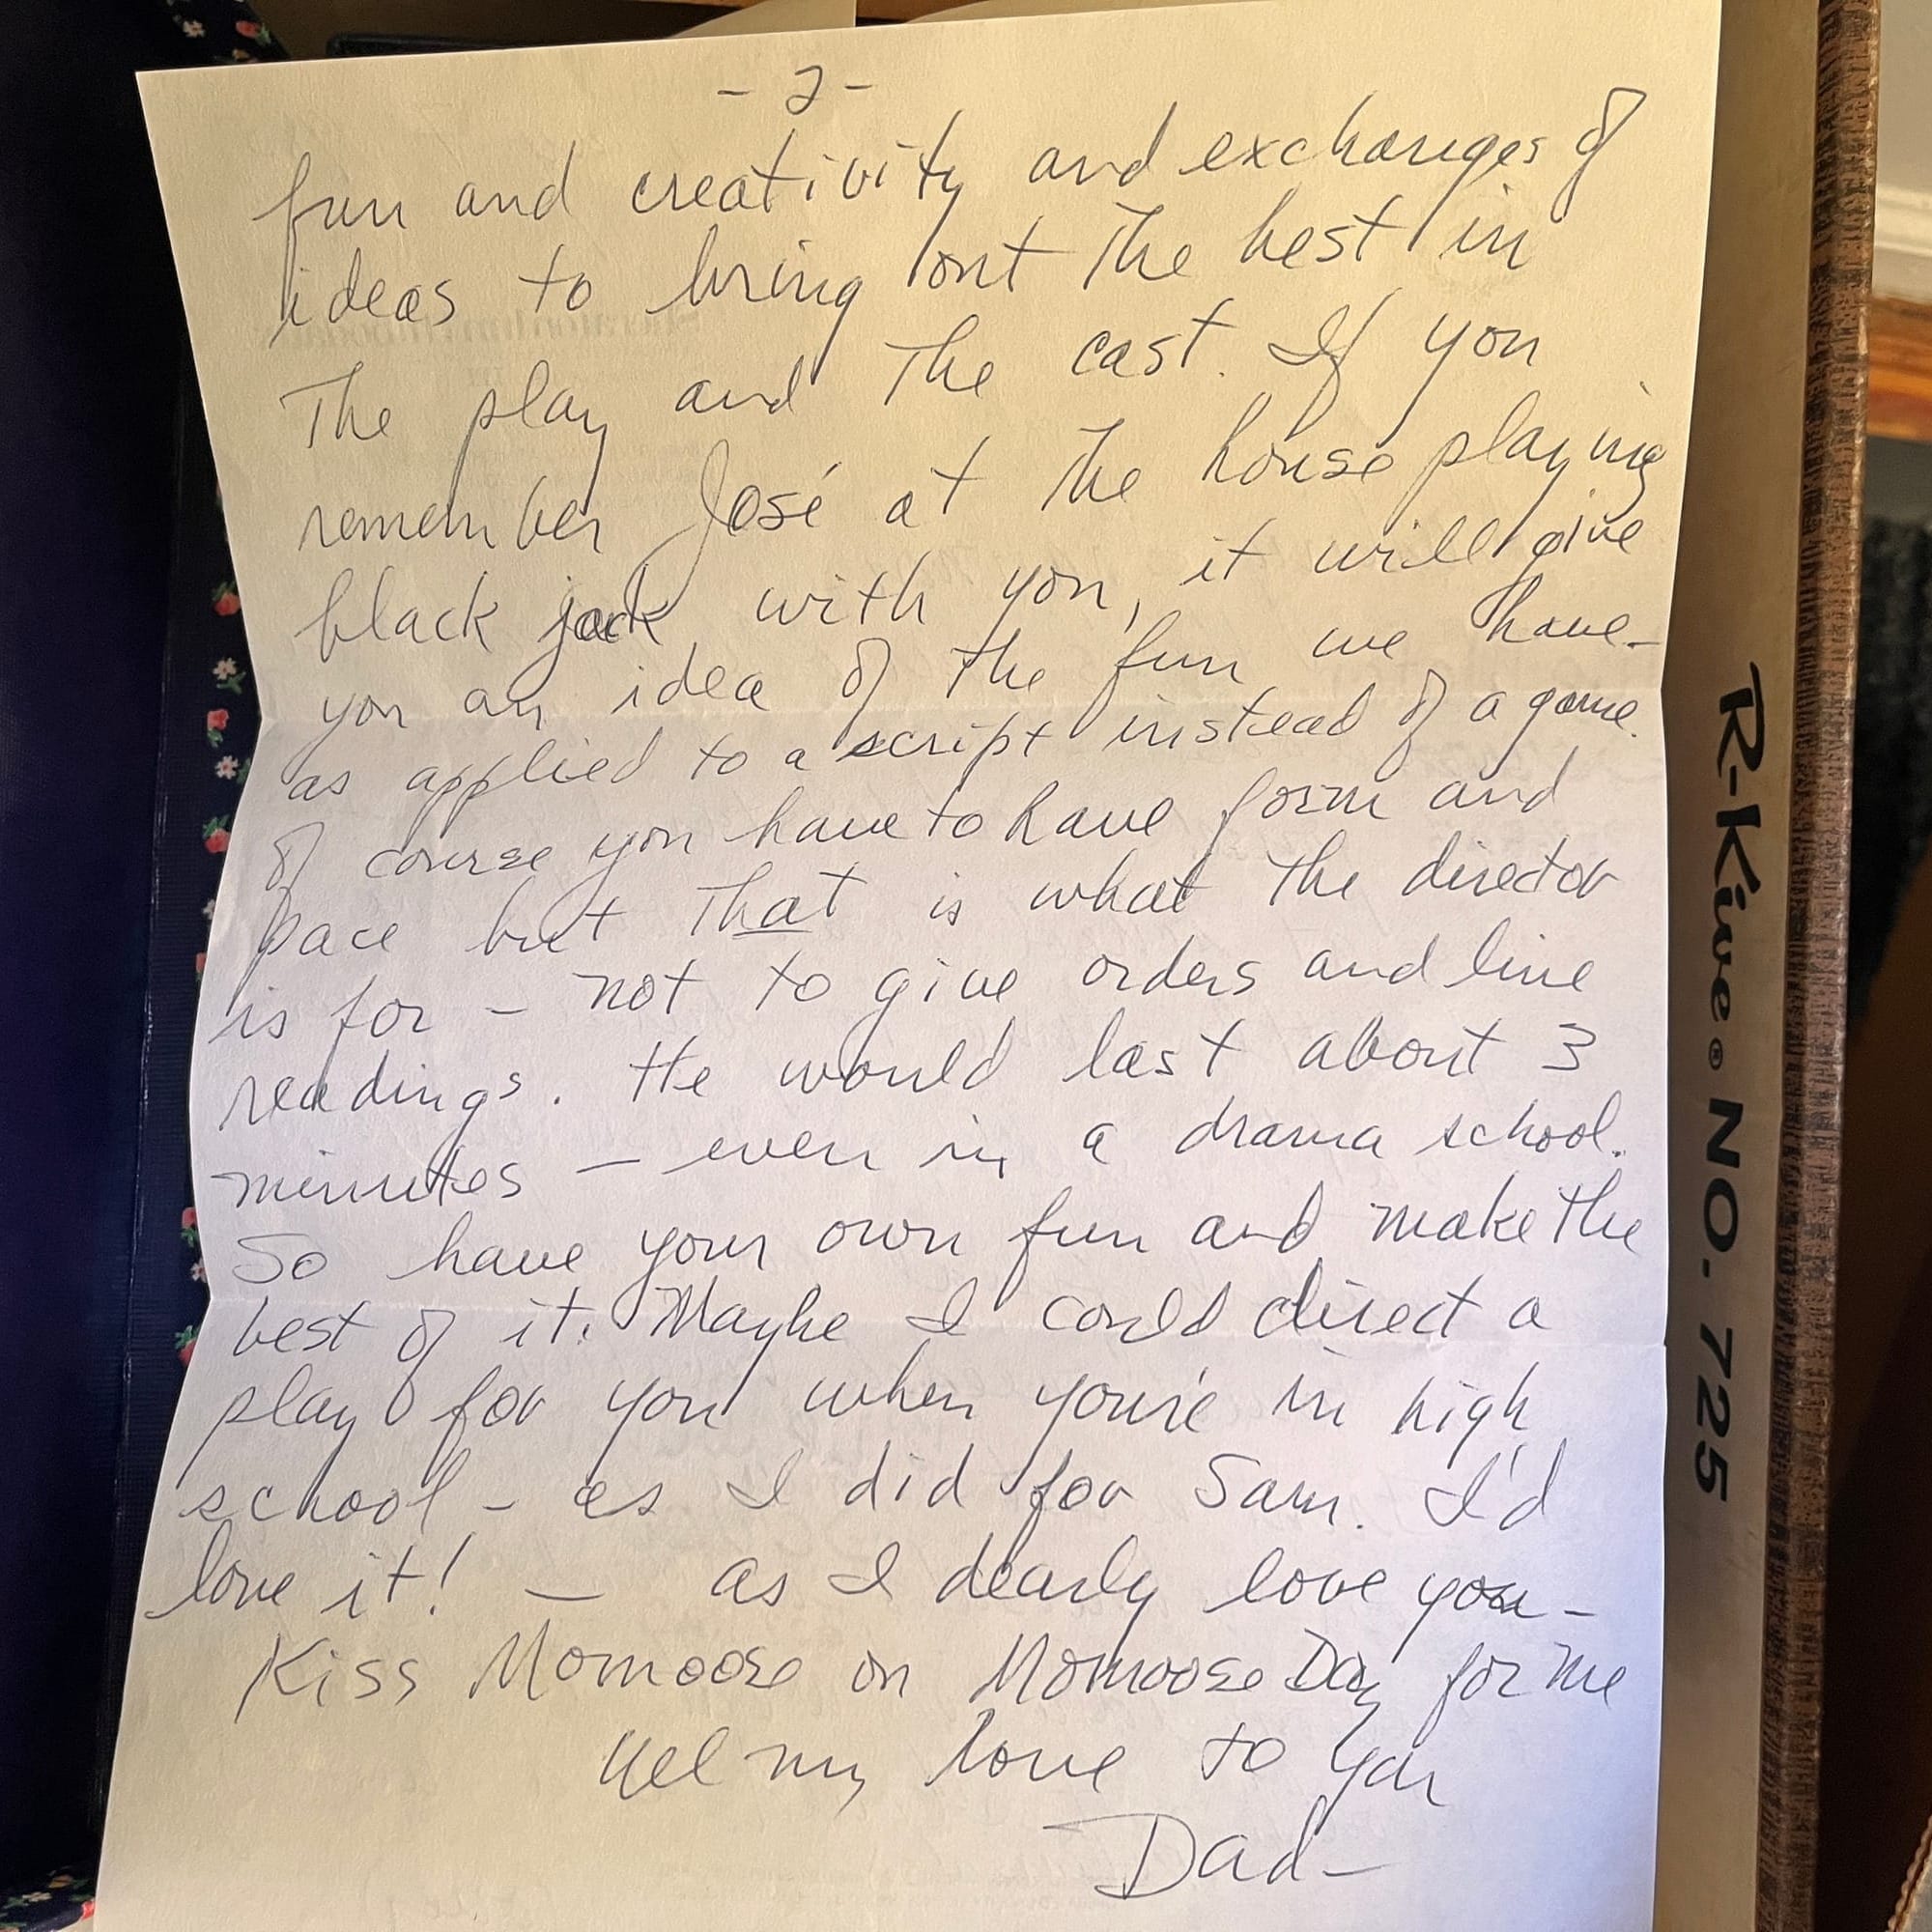 - 2 -
fun and creativity and exchanges of
ideas to bring out the best in
The play and The cast. If you
remember José at the house playing
black jack with you, it will give
you an idea of the fun we have -
as applied to a script instead of a game.
Of course you have to have form and
pace but That is what the director
is for - not to give orders and line
readings. He would last about 3
minutes - even in a drama school.
So have your own fun and make the
best of it. Maybe I could direct a
play for you when you're in high
school - as I did for Sam. I'd
love it! - as I dearly love you -
Kiss Momoose on Momoose Day for me
all my love to you
Dad -
R-Kive® NO. 725